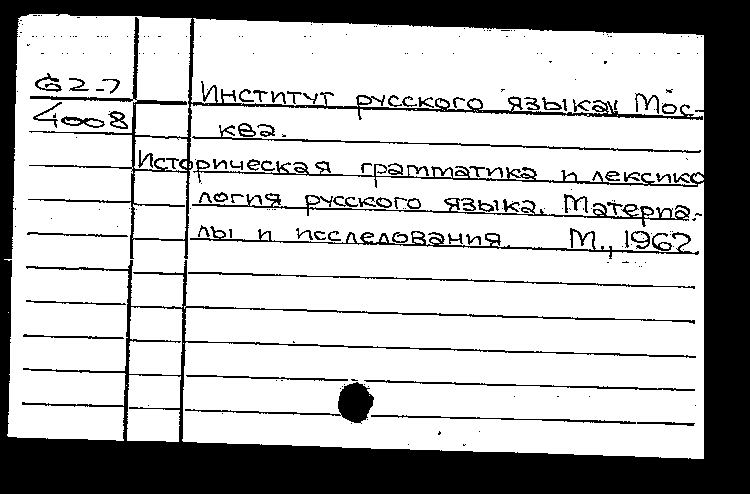 62-7
4008
Институт русского языка. Мос-
ква.
Историческая грамматика и лексико
логия русского языка. Материа-
лы и исследования. М., 1962.